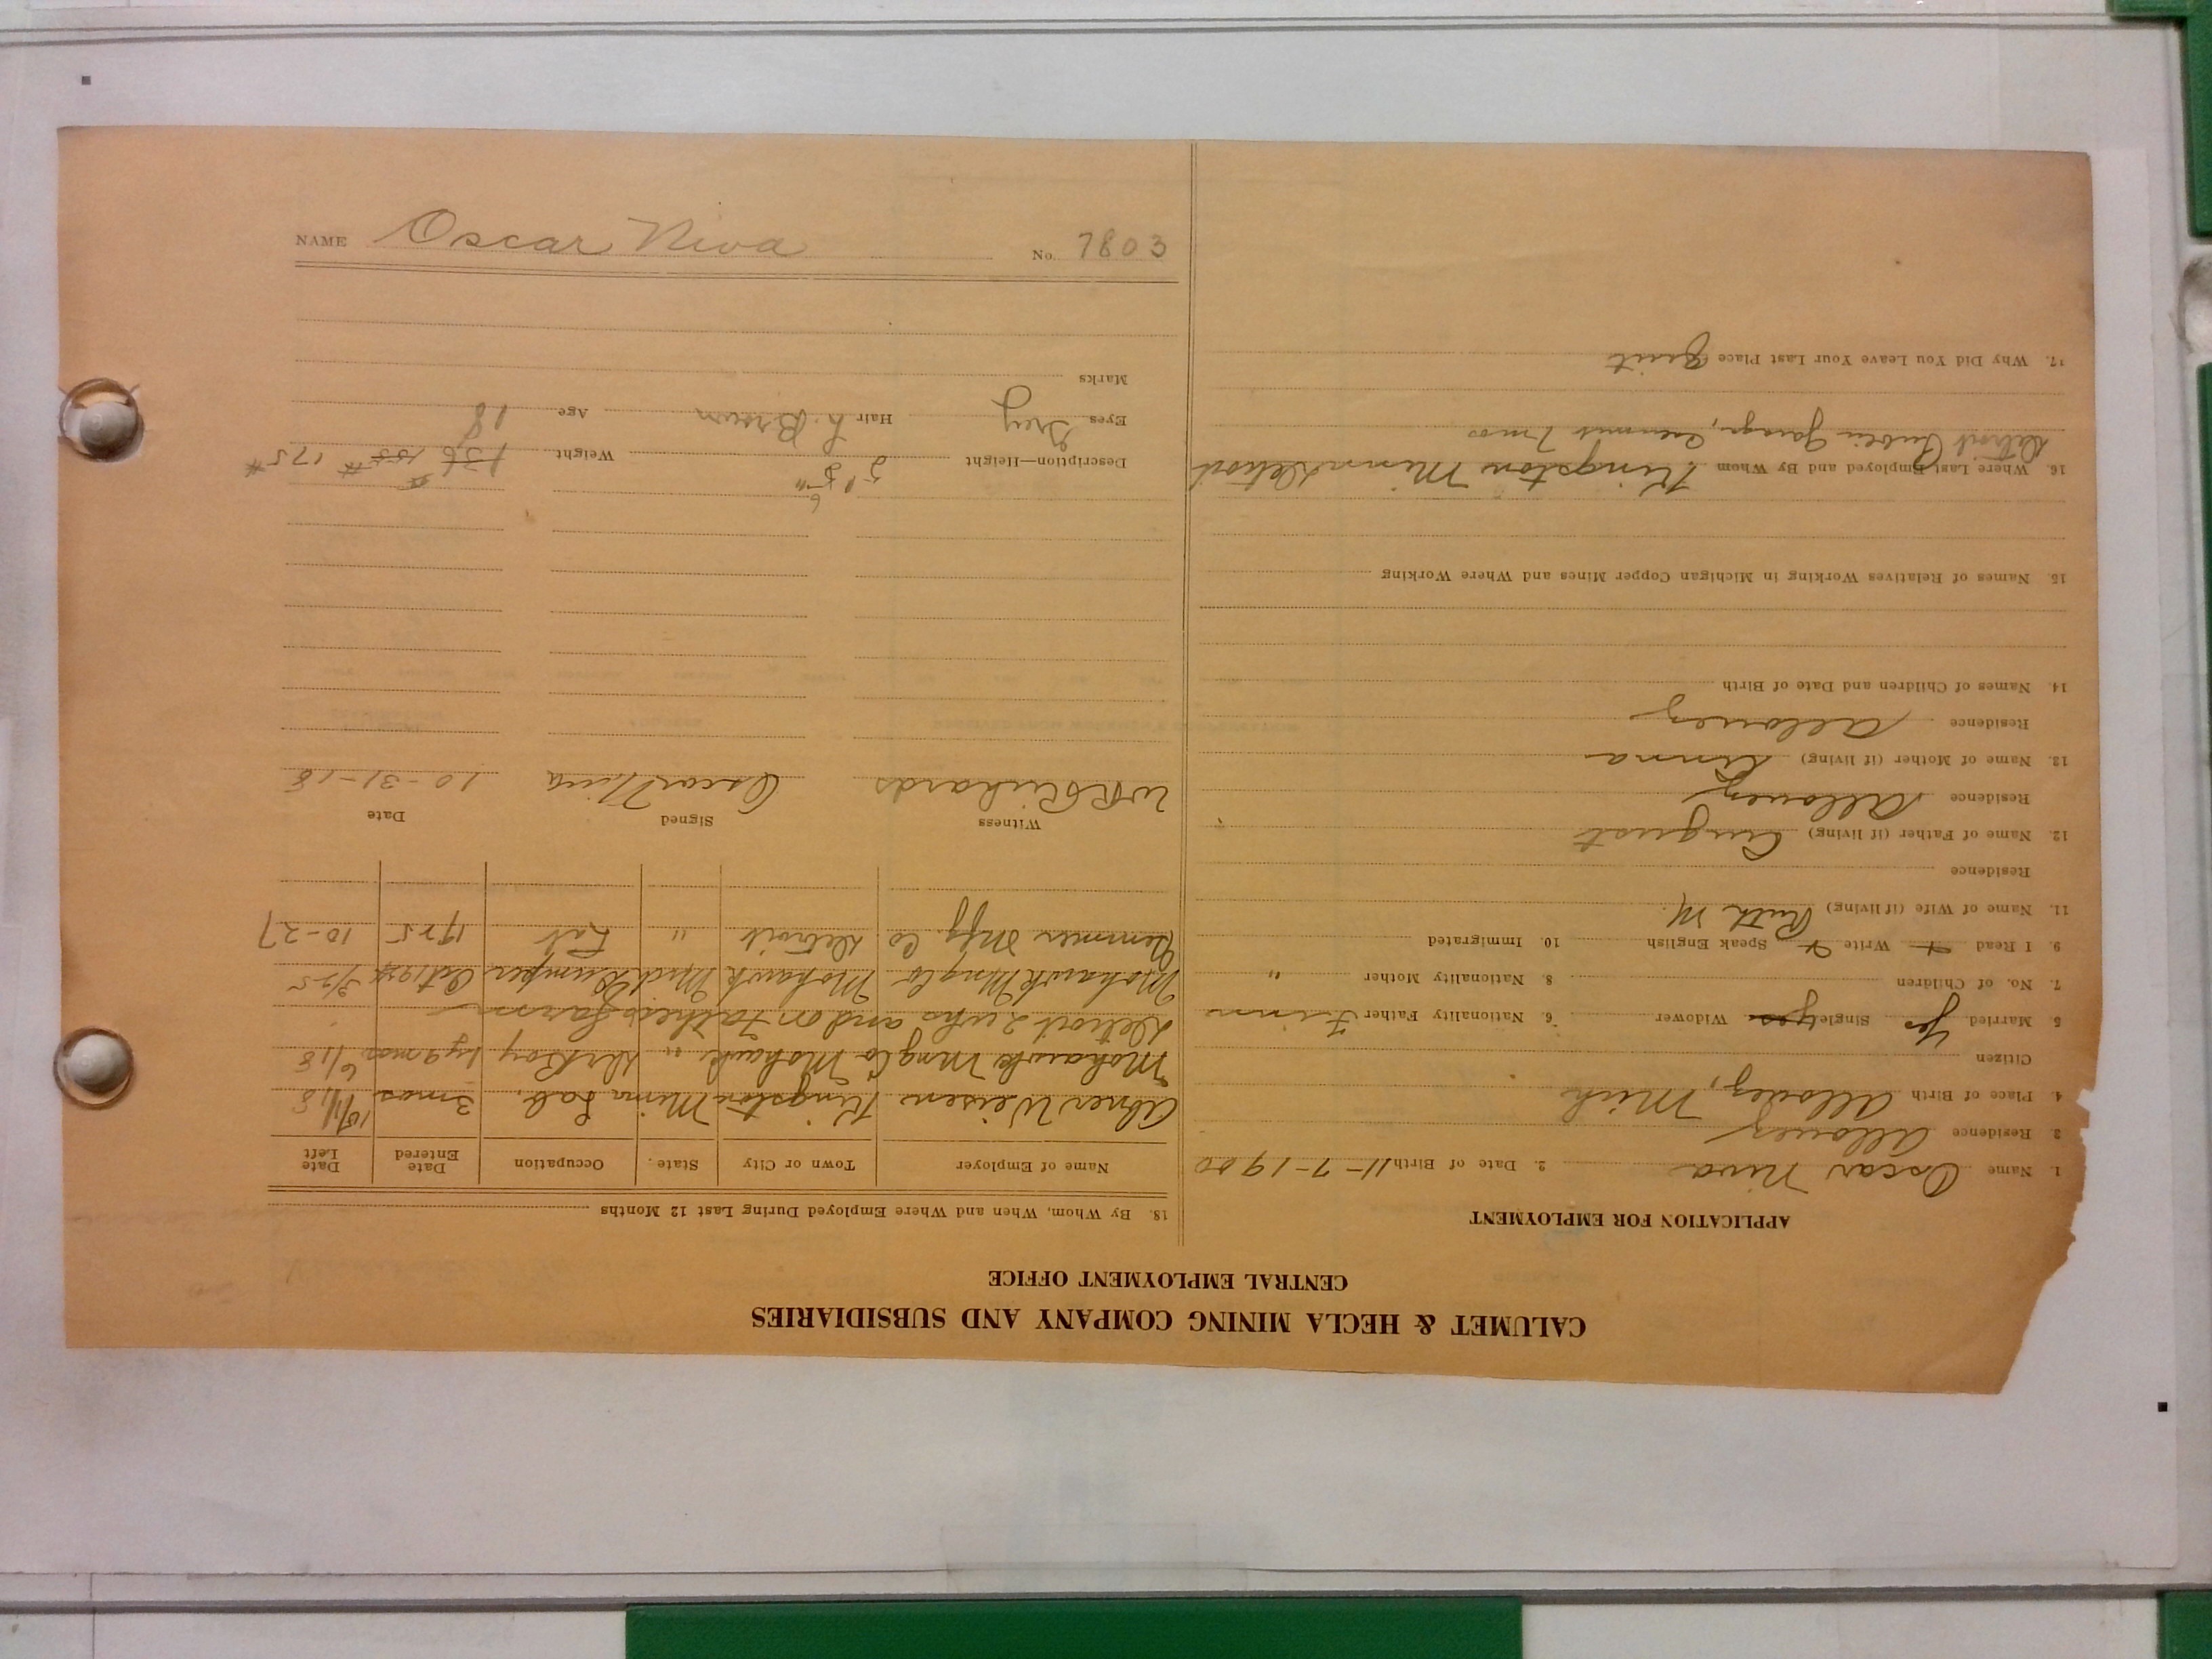 CALUMET & HECLA MINING COMPANY AND SUBSIDIARIES
CENTRAL EMPLOYMENT OFFICE
APPLICATION FOR EMPLOYMENT
1. Name Oscar Niva 2. Date of Birth 11-7-1900
3. Residence Allouez
4. Place of Birth Allouez, Mich
Citizen
5 Married Yes Single yes Widower 6. Nationality Father Finn
7. No. of Children 8. Nationality Mother "
9. I Read + Write + Speak English 10. Immigrated
11. Name of Wife (if living) Ruth M.
Residence
12. Name of Father (if living) August
Residence Allouez
13. Name of Mother (if living) Anna
Residence Allouez
14. Names of Children and Date of Birth
15. Names of Relatives Working in Michigan Copper Mines and Where Working
16. Where Last Employed and By Whom Kingston Minn Detroit
Detroit Garage, 7 mos
17. Why Did You Leave Your Last Place Quit
18. By Whom, When and Where Employed During Last 12 Months
Name of Employer Town or City State. Occupation Date Entered Date Left
Abner Weisen Kingston Minn Lab. 3 mos 10/1/18
Mohawk Mng Co Mohawk " Boy 1 y 9 mos 6/18
Detroit 2 wks and on fathers farm
Mohawk Mng Co Mohawk Mich Dumper Oct 1924 3/25
Gemmer Mfg. Co Detroit " Lab 1925 10-27
Witness Signed Date
W R Richards Oscar Niva 10-31-18
6
Description—Height 5' 5" Weight 136 # 155 # 175 #
Eyes Grey Hair L. Brown Age 18
Marks
NAME Oscar Niva No. 7803